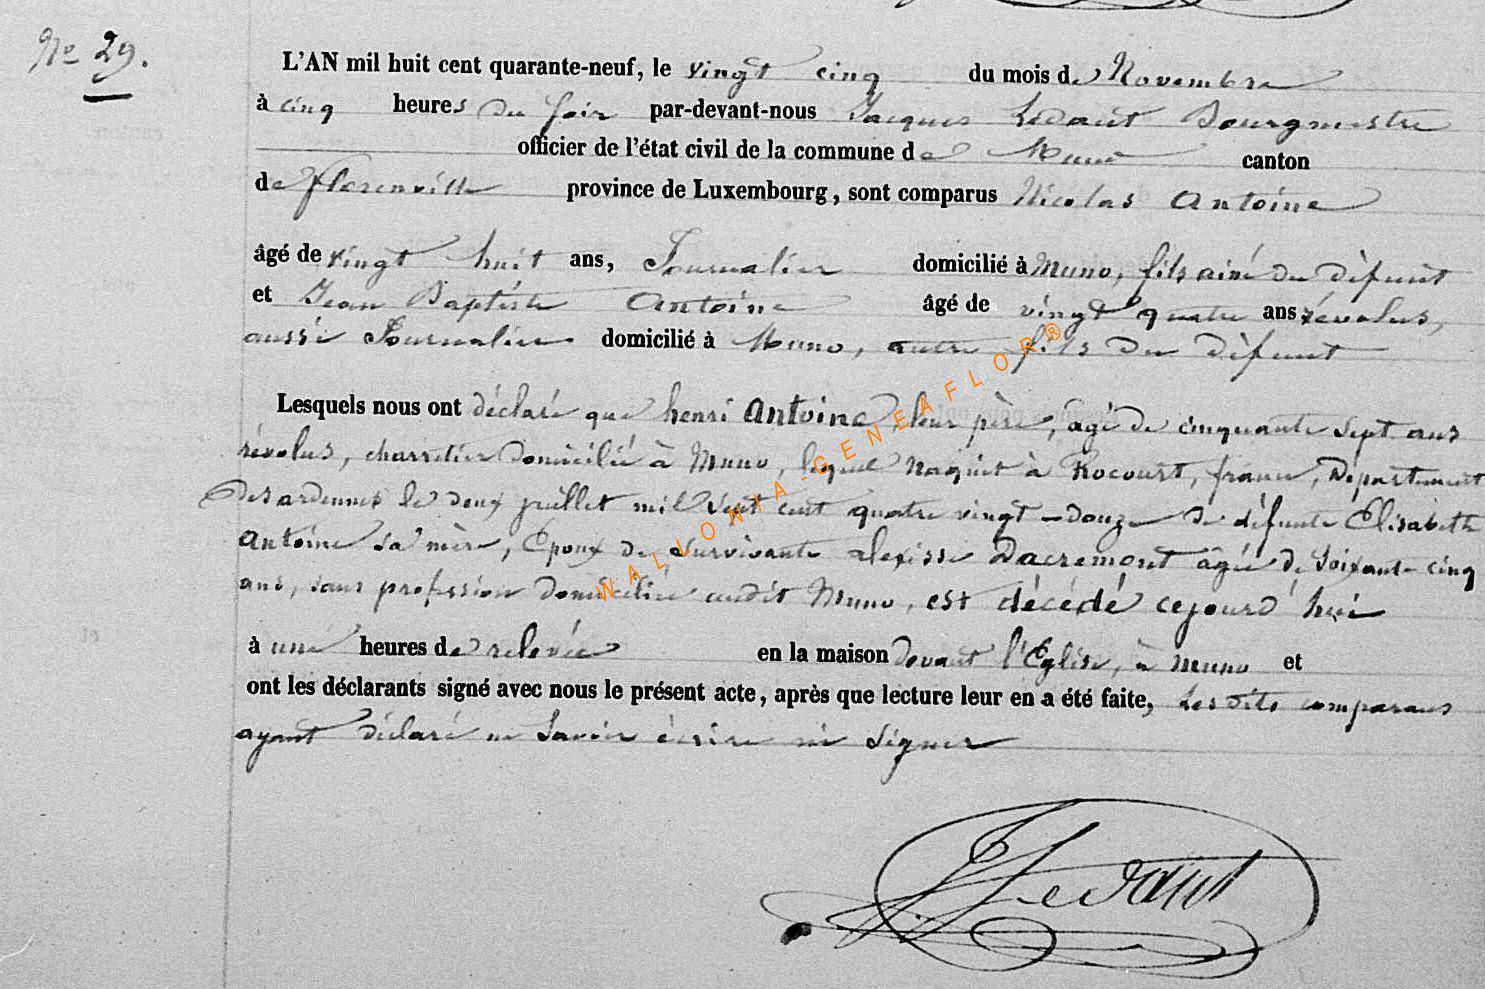 No 29.
L'AN mil huit cent quarante-neuf, le vingt cinq du mois de Novembre
à cinq heures du soir par-devant-nous Jacques Ledant Bourgmestre
officier de l'état civil de la commune de Muno canton
de florenville province de Luxembourg, sont comparus Nicolas Antoine
âgé de vingt huit ans, Journalier domicilié à Muno, fils ainé du défunt
et Jean Baptiste Antoine âgé de vingt quatre ans révolus,
aussi Journalier domicilié à Muno, autre fils du défunt
Lesquels nous ont déclaré que henri Antoine, leur père, âgé de cinquante sept ans
révolus, charretier domicilié à Muno, lequel naquit à Rocourt, france, Département
des ardennes le deux juillet mil sept cent quatre vingt-douze de défunte Elisabeth
Antoine sa mère, Epoux de survivante alexisse Dacremont âgée de soixante-cinq
ans, sans profession domiciliée audit Muno, est décédé cejourd'hui
à une heures de relevée en la maison devant l'Eglise, à Muno et
ont les déclarants signé avec nous le présent acte, après que lecture leur en a été faite, Les dits comparans
ayant déclaré ne savoir écrire ni signer
JLedant
WALLONIA-GENEAFLOR®